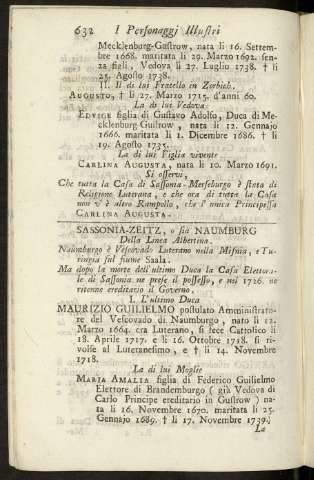 632 I Personaggi Illustri
Mecklenburg-Gustrow, nata li 16. Settem-
bre 1668. maritata li 29. Marzo 1692. sen-
za figli, Vedova li 27. Luglio 1738. † li
25. Agosto 1738.
II. Il di lui Fratello in Zorbich.
AUGUSTO, † li 27. Marzo 1715. d'anni 60.
La di lui Vedova.
EDVIGE figlia di Gustavo Adolfo, Duca di Me-
cklenburg-Gustrow, nata li 12. Gennajo
1666. maritata li 1. Dicembre 1686. † li
19. Agosto 1735.
La di lui Figlia vivente
CARLINA AUGUSTA, nata li 10. Marzo 1691.
Si osservi,
Che tutta la Casa di Sassonia-Merseburgo è stata di
Religione Luterana, e che ora di tutta la Casa
non v'è altro Rampollo, che l'unica Principessa
CARLINA AUGUSTA.
SASSONIA-ZEITZ, o sia NAUMBURG
Della Linea Albertina.
Naumburgo è Vescovado Luterano nella Misnia, e Tu-
ringia sul fiume Saala.
Ma dopo la morte dell'ultimo Duca la Casa Elettora-
le di Sassonia ne prese il possesso, e nel 1726. ne
ritenne ereditario il Governo.
I. L'ultimo Duca
MAURIZIO GUILIELMO postulato Amministrato-
re del Vescovado di Naumburgo, nato li 12.
Marzo 1664. era Luterano, si fece Cattolico li
18. Aprile 1717. e li 16. Ottobre 1718. si ri-
volse al Luteranesimo, e † li 14. Novembre
1718.
La di lui Moglie
MARIA AMALIA figlia di Federico Guilielmo
Elettore di Brandemburgo ( già Vedova di
Carlo Principe ereditario in Gustrow ) na-
ta li 16. Novembre 1670. maritata li 25.
Gennajo 1689. † li 17. Novembre 1739.
La